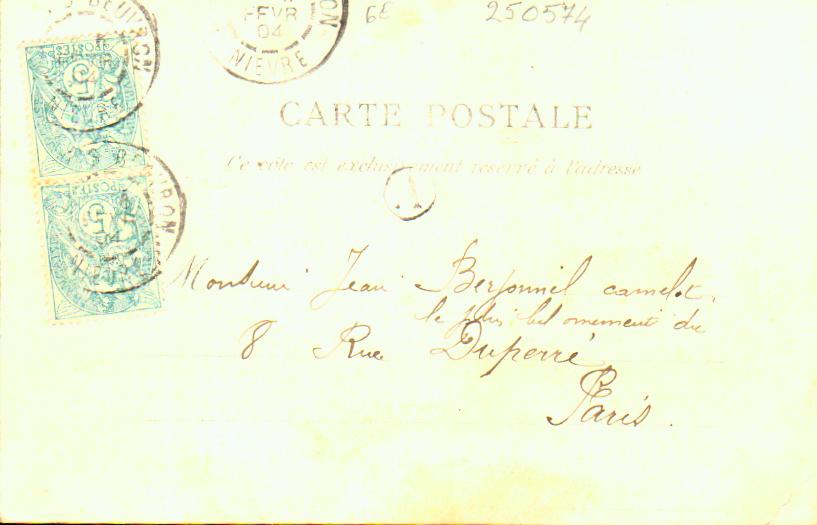 6E 250574
BEUVRON
FEVR
04
NIEVRE
POSTES
5
CARTE POSTALE
Ce côté est exclusivement réservé à l'adresse
A
POSTES
5
NIEVRE
Monsieur Jean camelot
le plus bel ornement du
8 Rue Duperré
Paris.